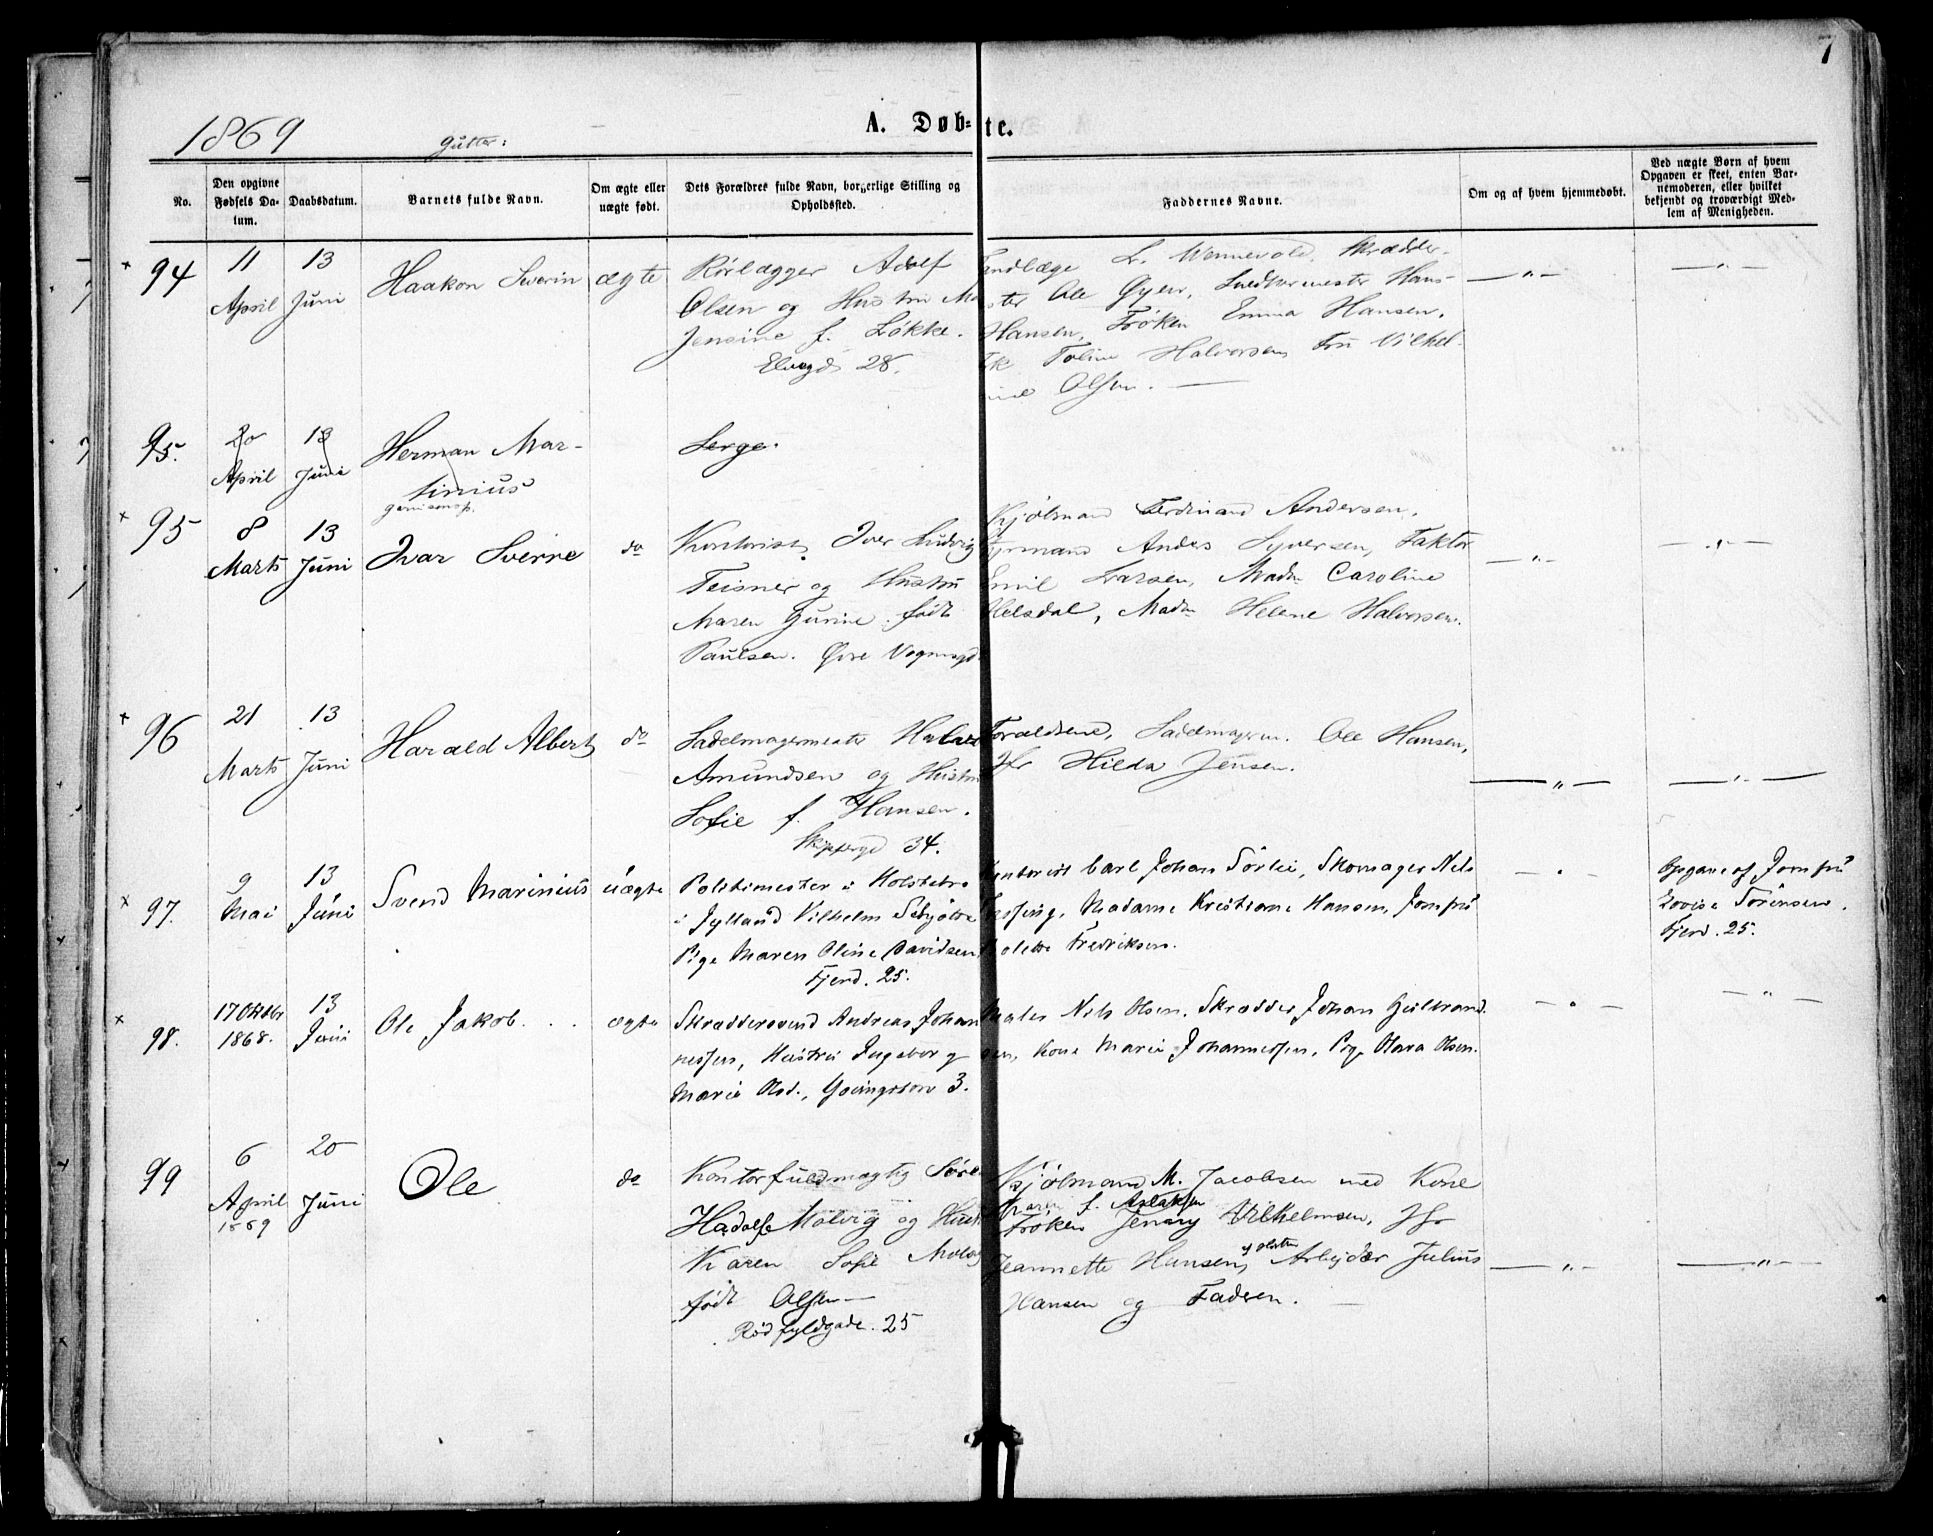 7
1869
Gutter:
A. Døb-te.
No.
Den opgivne Fødsels Da-tum.
Daabsdatum.
Barnets fulde Navn.
Om ægte eller uægte født.
Dets Forældres fulde Navn, borgerlige Stilling og Opholdssted.
Faddernes Navne.
Om og af hvem hjemmedøbt.
Ved uægte Børn af hvem Opgaven er skeet, enten Bar-nemoderen, eller hvilket bekjendt og troværdigt Med-lem af Menigheden.
94
11 April
13 Juni
Haakon Sverin
ægte
Rørlægger Adolf
Olsen og Hustru
Jensine f. Løkke.
28.
Wennevold, Skrædder-
Ole Hans
Hansen, Frøken Emma Hansen,
Halvorsen, Fru Vilhel-
Olsen.
95.
20 April
13 Juni
Herman Mar-
tinius
Serge.
95
8 Marts
13 Juni
Ivar Sverre
do
Kontorist Iver Ludvig
Teisner og Hustru
Maren Gurine født
Paulsen. Øvre Vognmgd.
Kjølmand Ferdinand Andersen,
Anders Syversen, Faktor
Emil Larsen, Madm Caroline
Madm Helene Halvorsen.
96
21 Marts
13 Juni
Harald Albert
do
Sadelmagermester
Amundsen og Hustru
Sofie f. Hansen.
Skippergd 34.
Forældrene, Sadelmagerm. Ole Hansen,
Jfr Hilda Jensen.
97.
9 Mai
13 Juni
Svend Marinius
uægte
Politimester i Holstebro
i Jylland Vilhelm
Pige Maren Oline Davidsen
Fjerd. 25.
Kontorist Carl Johan Sørlie, Skomager Nels
Madame Kristiane Hansen, Jomfru
Fredriksen.
Opgave af Jomfru
Lovise Sørensen.
Fjerd. 25.
98.
17 Oktbr 1868.
13 Juni
Ole Jakob.
ægte
Skræddersvend Andreas Johan
nessen, Hustru Ingeborg
Marie Olsd.,  3.
Maler Nils Olsen, Skrædder Johan Gulbrand
sen, Kone Marie Johannessen, Pige Olava Olsen.
99
6 April 1869
20 Juni
Ole
do
Kontorfuldmægtig Søren
Hadolf Molvig og Hustr
Karen Sofie Molvig
født Olsen
Rødfyldgade. 25
Kjølmand M. Jacobsen med Kone
Karen f. Aslaksen
Frøken Jenny Vilhelmsen, Jfr
Jeannette Hansen, Arbejder Julius
Hansen og Faderen.